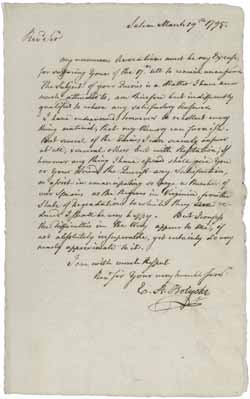 Salem March 19th 1795.
Revd Sir
my numerous Avocations must be my Excuse
for suffering Yours of the 17. ult to remain unanswered
The Subject of your Queries is a Matter I have not
much attended to, am therefore but indifferently
qualified to return any satisfactory Answers
I have endeavoured however to recollect every
thing material, that my Memory can furnish.
But most of the Things I can merely guess
at, several others but with Hesitation. If
however any thing I have offered shall give You
or Your Friend the smallest Satisfaction,
or assist in emancipating so large a Number of
our Species as the Negroes in Virginia from the
State of Degradation to which they are re-
duced I shall be very happy. But I confess
the Difficulties in the Way appear to me, if
not absolutely insuperable, yet certainly to very
nearly approximate to it.
I am with much Respect
Revd Sir Your very humble Servt
E. A. Holyoke